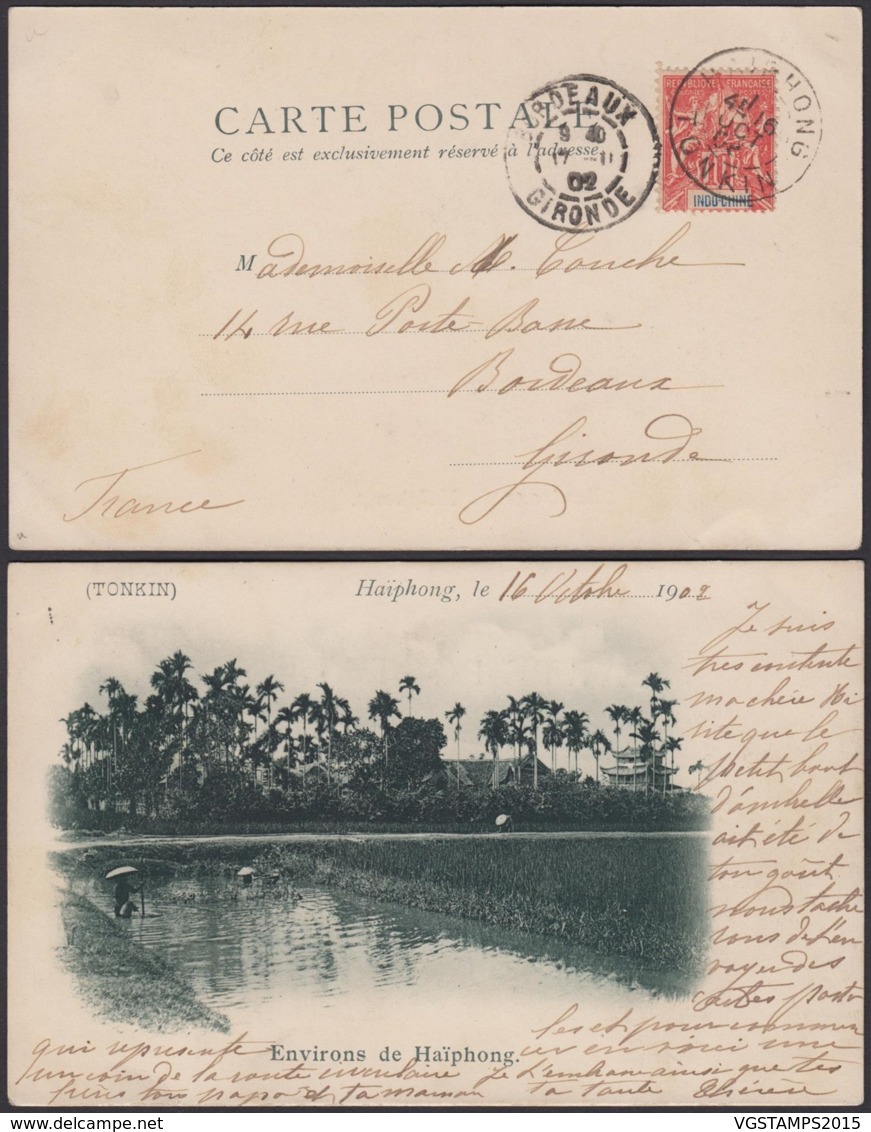 CARTE POSTALE
Ce côté est exclusivement réservé à l'adresse.
BORDEAUX
02
GIRONDE
REPUBLIQUE FRANÇAISE
INDO-CHINE
HAIPHONG
TONKIN
Mademoiselle M. Couche
14 rue Porte-Basse
Bordeaux
Gironde
France
(TONKIN)
Haïphong, le 16 Octobre 1902
Je suis
très contente
ma chère
que le
petit bout
d'ombrelle
ait été de
ton goût
nous tache
rons de t'en
voyer des
cartes posta
les et pour commen
cer en voici une
qui représente
un coin de la route circulaire
Je t'embrasse ainsi que tes
frères ton papa et ta maman
ta tante Thérèse
Environs de Haïphong.
VGSTAMPS2015